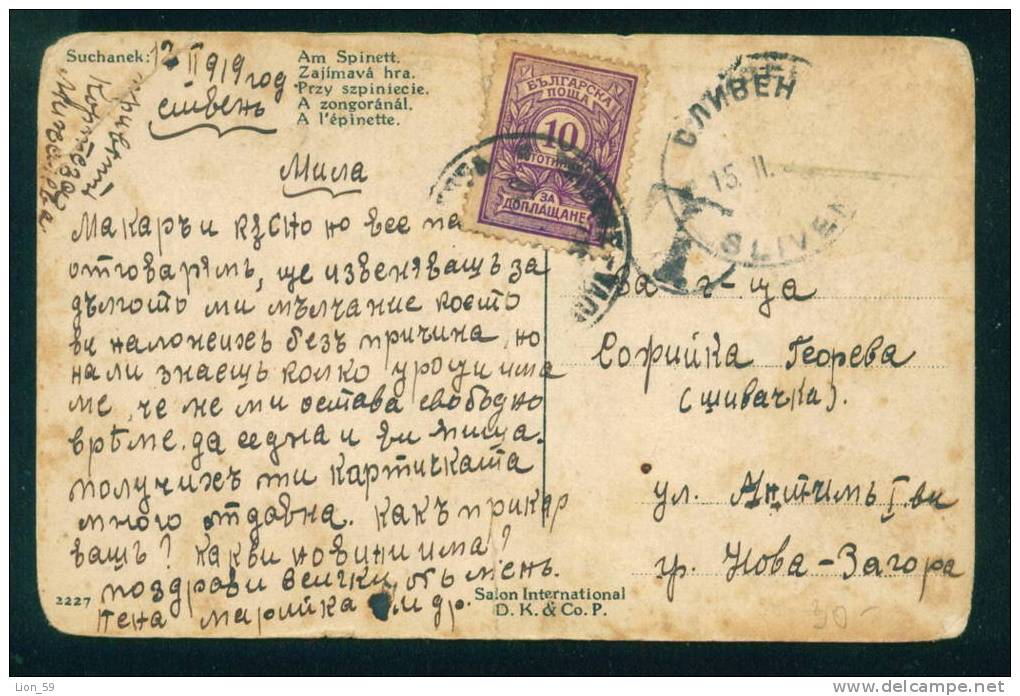 Suchanek:
Am Spinett.
Zajímavá hra.
Przy szpiniecie.
A zongoránál.
A l'épinette.
12 II 919 год.
Сливенъ
Мила
Макаръ и късно но все
отговарямъ, ще извеняващъ за
дългото ми мълчание което
ви наложихъ безъ причина, но
нали знаешъ колко уроци има
ме, че не ми остава свободно
врѣме. да седна и ви пиша.
получихъ ти картичката
много отдавна. Какъ прикар
вашъ? какви новини има?
поздрави всички отъ менъ.
Пена Марийка и др.
2227
Salon International
D. K. & Co. P.
БЪЛГАРСКА
ПОЩА
10
СТОТИНКИ
ЗА
ДОПЛАЩАНЕ
СЛИВЕН
15. II.
SLIVEN
T
г-ца
Софийка Георева
(шивачка).
ул. Антимъ I ви
гр. Нова-Загора
30-
Lion_59
delcampe.net